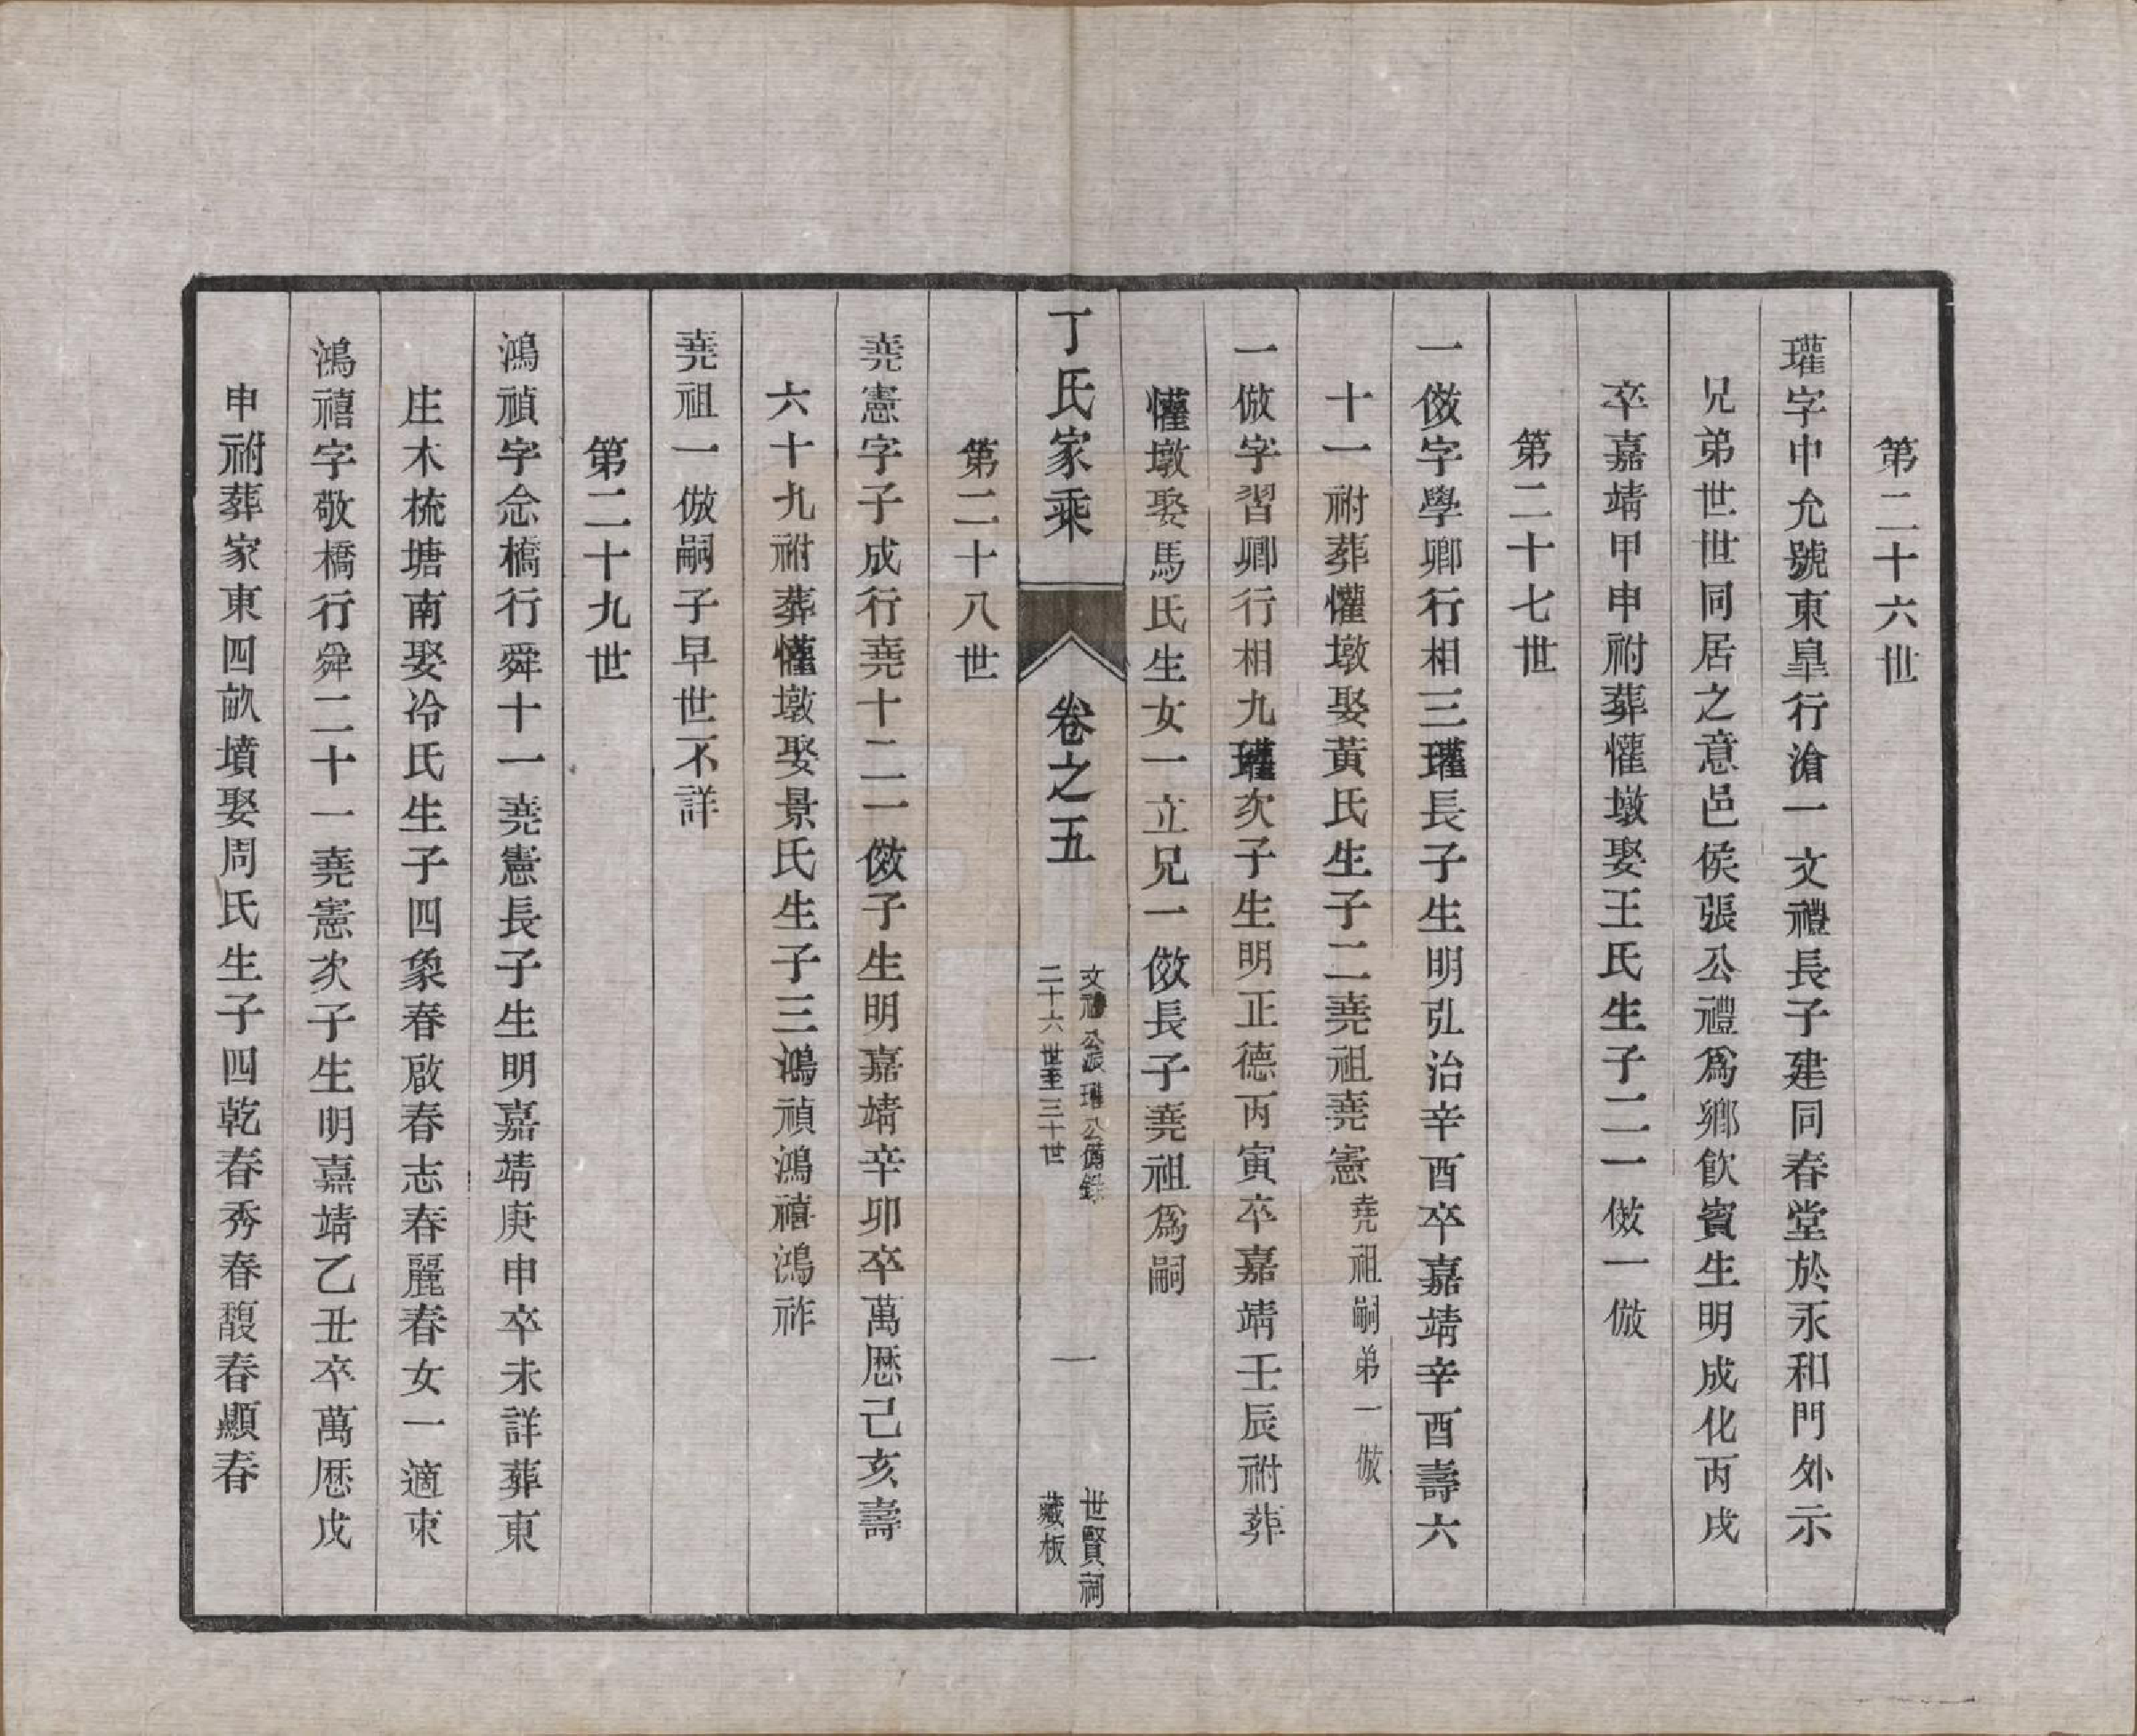 第二十六世
瓘字中允號東皐行滄一文禮長子建同春堂於永和門外示
兄弟世世同居之意邑侯張公禮爲鄉飮賓生明成化丙戌
卒嘉靖甲申祔葬懽墩娶王氏生子二一倣一倣
第二十七世
一傚字學卿行相三瓘長子生明弘治辛酉卒嘉靖辛酉壽六
十一祔葬懽墩娶黃氏生子二堯祖堯憲堯祖嗣弟一倣
一倣字習卿行相九瓘次子生明正德丙寅卒嘉靖壬辰祔葬
懽墩娶馬氏生女一立兄一傚長子堯祖爲嗣
丁氏家乘
卷之五
文禮公派瓘公備錄
二十六世至三十世
一
世賢祠
藏板
第二十八世
堯憲字子成行堯十二一傚子生明嘉靖辛卯卒萬厯己亥壽
六十九祔葬懽墩娶景氏生子三鴻禎鴻禧鴻祚
堯祖一倣嗣子早世不詳
第二十九世
鴻禎字念橋行舜十一堯憲長子生明嘉靖庚申卒未詳葬東
庄木梳塘南娶冷氏生子四象春啟春志春麗春女一適朿
鴻禧字敬橋行舜二十一堯憲次子生明嘉靖乙丑卒萬厯戊
申祔葬家東四畝墳娶周氏生子四乾春秀春馥春顯春